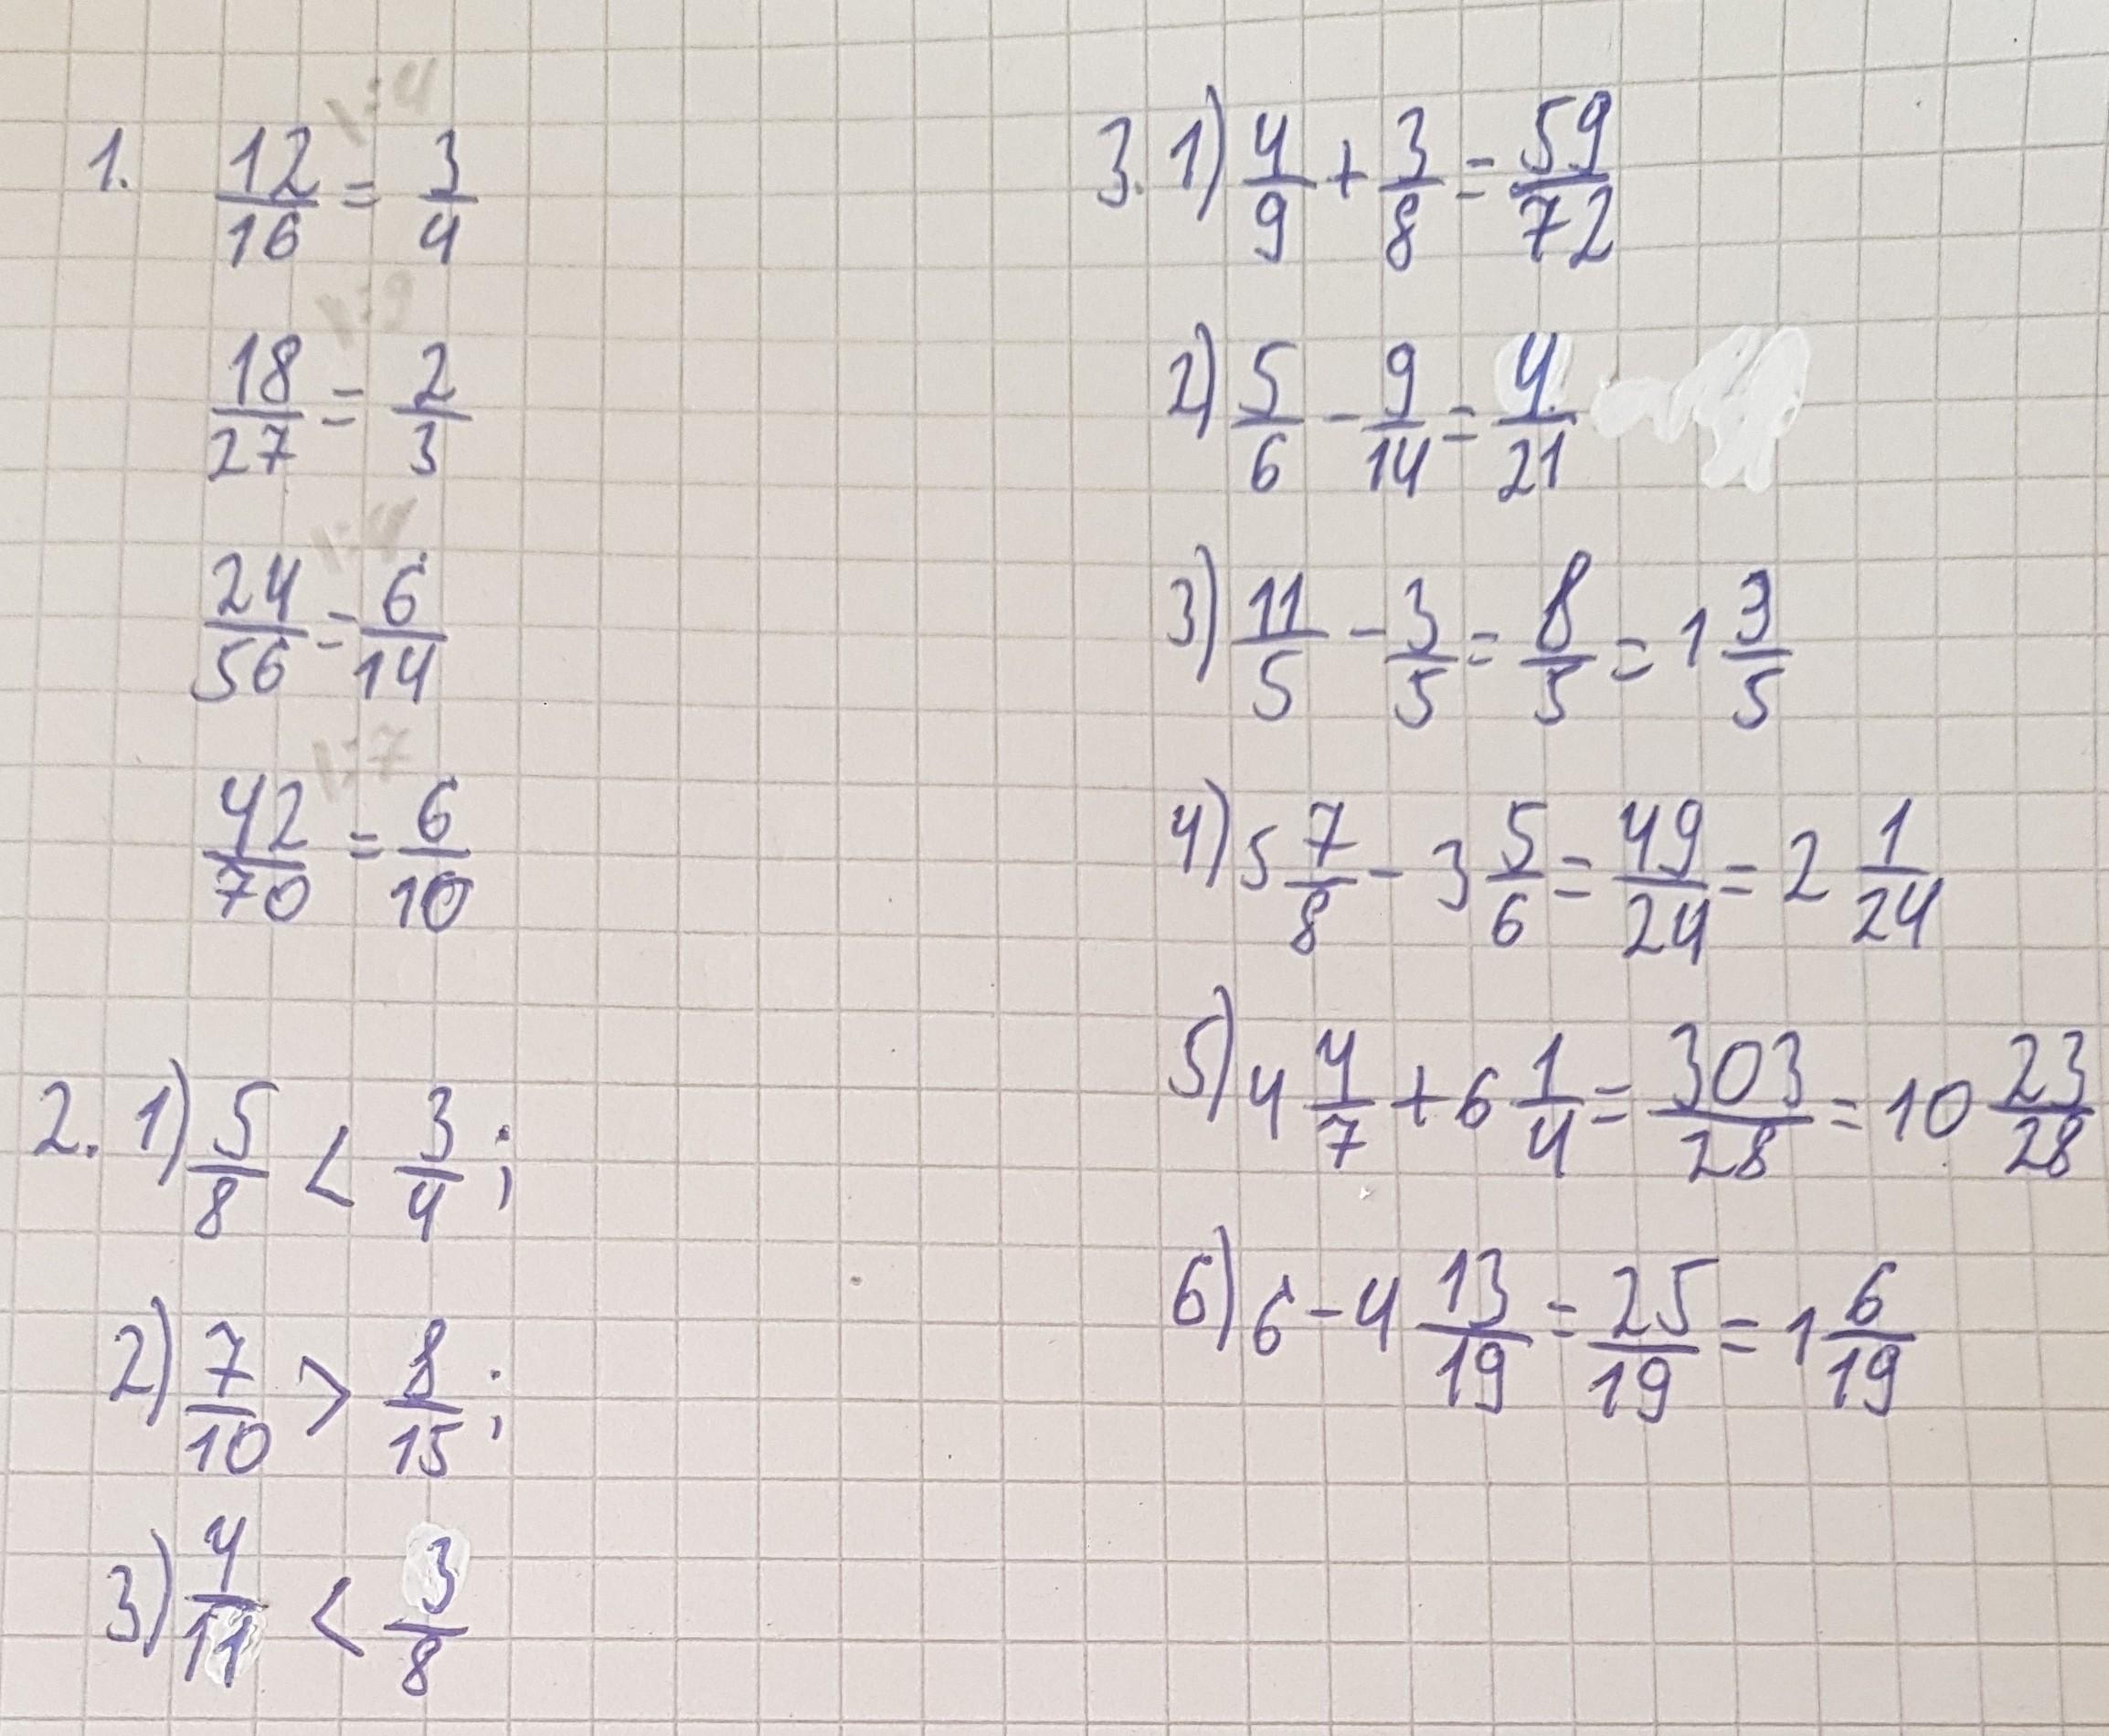 1. 12/16 |:4 = 3/4
18/27 |:9 = 2/3
24/56 |:4 = 6/14
42/70 |:7 = 6/10
2. 1) 5/8 < 3/4;
2) 7/10 > 8/15;
3) 4/11 < 3/8
3. 1) 4/9 + 3/8 = 59/72
2) 5/6 - 9/14 = 4/21
3) 11/5 - 3/5 = 8/5 = 1 3/5
4) 5 7/8 - 3 5/6 = 49/24 = 2 1/24
5) 4 4/7 + 6 1/4 = 303/28 = 10 23/28
6) 6 - 4 13/19 = 25/19 = 1 6/19